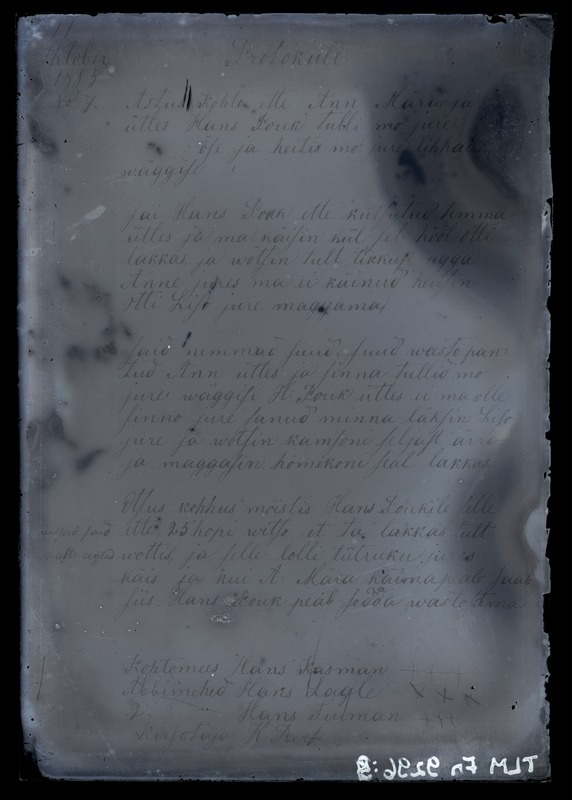 11
October
1885
No 7.
Protokull
Astus kohto ette Ann Mära ja
ütles Hans Louk tulli mo jure
öse ja heitis mo jure lihhal
wäggise
Sai Hans Louk ette kutsutud temma
ütles ja ma käisin kül sel hööl otti
lakkas ja wotsin tult tikkust agga
Anne jures ma ei käinud heitsin
otti Liso jure maggama
Said nemmad suud suud wasto pan
tud Ann ütles ja sinna tullid mo
jure wäggise H Louk ütles ei ma olle
sinno jure sanud minna läksin Liso
jure ja wotsin kamsoni seljast ärra
ja maggasin homikoni seal lakkas
Otsus kohhus moistis Hans Loukile selle
ette 25 hopi witso et ta lakkas tult
wottis, ja selle lolli tütruku jures
käis ja kui A Mära käimapeale saab
siis Hans Louk peab sedda wastotama
said
Kohtomees Hans Kasman +++
Abbimehed Hans Laglo XXX
2 Hans Teiman +++
kirjotaja
TLM Fn 9296:3